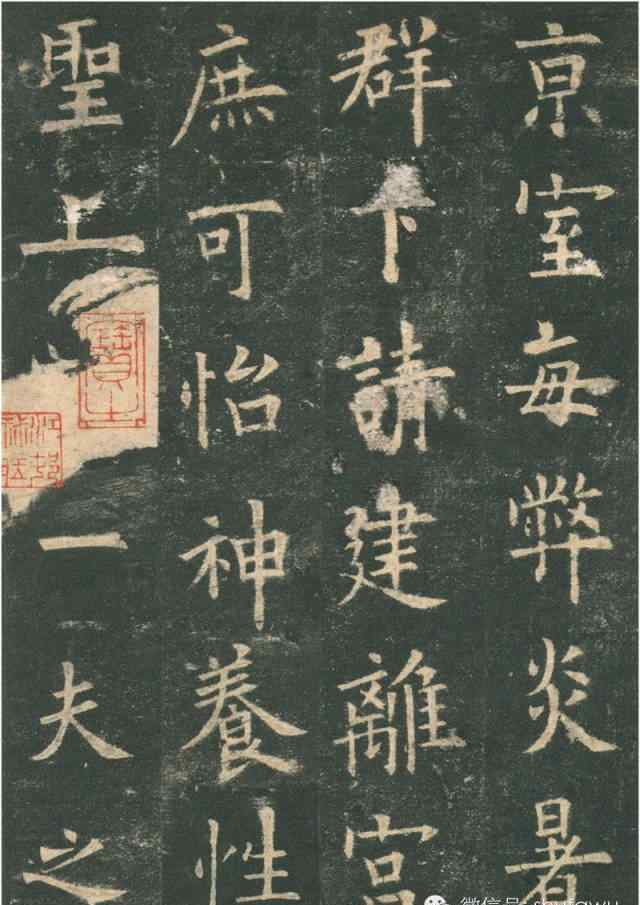 京室每弊炎暑
群下請建離宮
庶可怡神養性
聖上 一夫之
微信号: